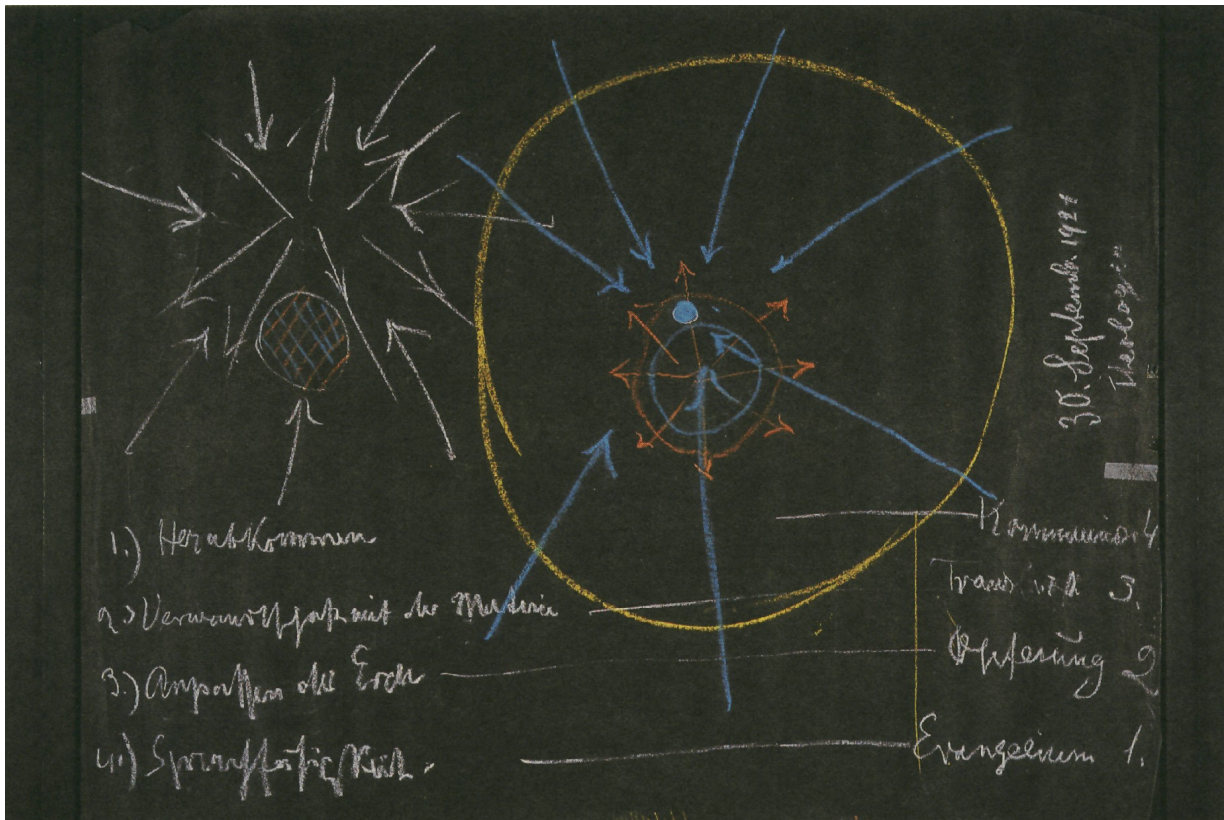 30. Septemb. 1921
Theologen
1.) Herabkommen
2.) Verwandtschaft mit der Materie
3.) Anpassen der Erde
4.) Sprachfähigkeit.
4
3.
Opferung 2
Evangelium 1.